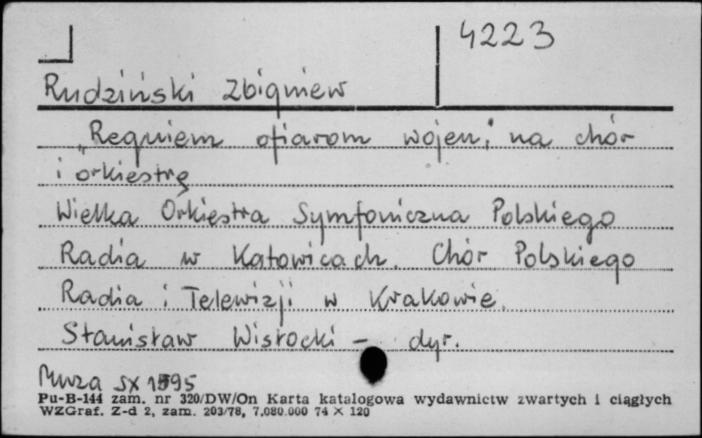 4223
Rudziński Zbigniew
„Requiem ofiarom wojen" na chór
i orkiestrę
Wielka Orkiestra Symfoniczna Polskiego
Radia w Katowicach. Chór Polskiego
Radia i Telewizji w Krakowie.
Stanisław Wisłocki – dyr.
Muza SX 1595
Pu-B-144 zam. nr 320/DW/On Karta katalogowa wydawnictw zwartych i ciągłych
WZGraf. Z-d 2, zam. 203/78, 7,080.000 74 × 120